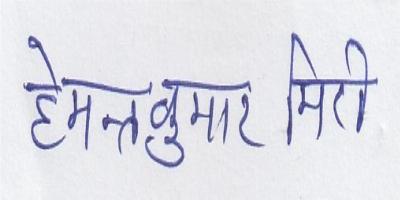 हेमन्त कुमार मिरी